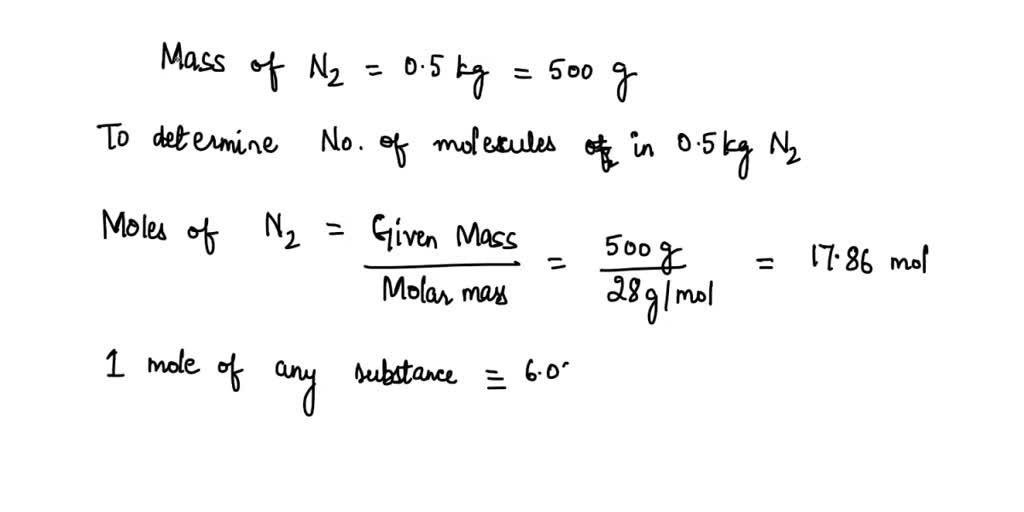 Mass of N₂ = 0.5 kg = 500 g
To determine No. of molecules in 0.5 kg N₂
Moles of N₂ = Given Mass / Molar mass = 500 g / 28 g/mol = 17.86 mol
1 mole of any substance ≡ 6.0